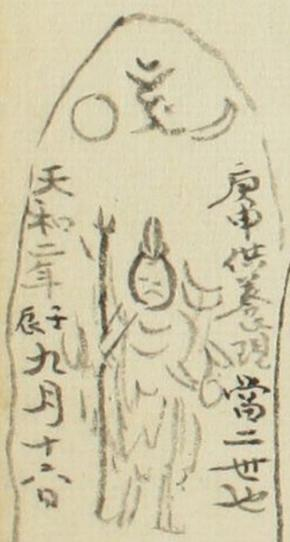 庚申供養現當二世也
天和二年壬辰九月十六日